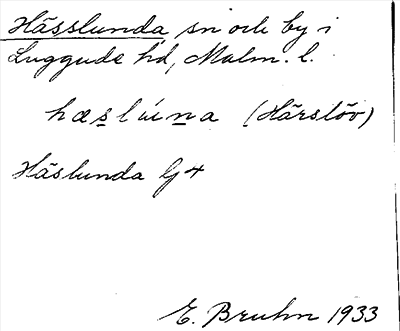 Hässlunda sn och by i
Luggude hd, Malm. l.
hæslúna (Härslöv)
Häslunda G4
E. Bruhn 1933